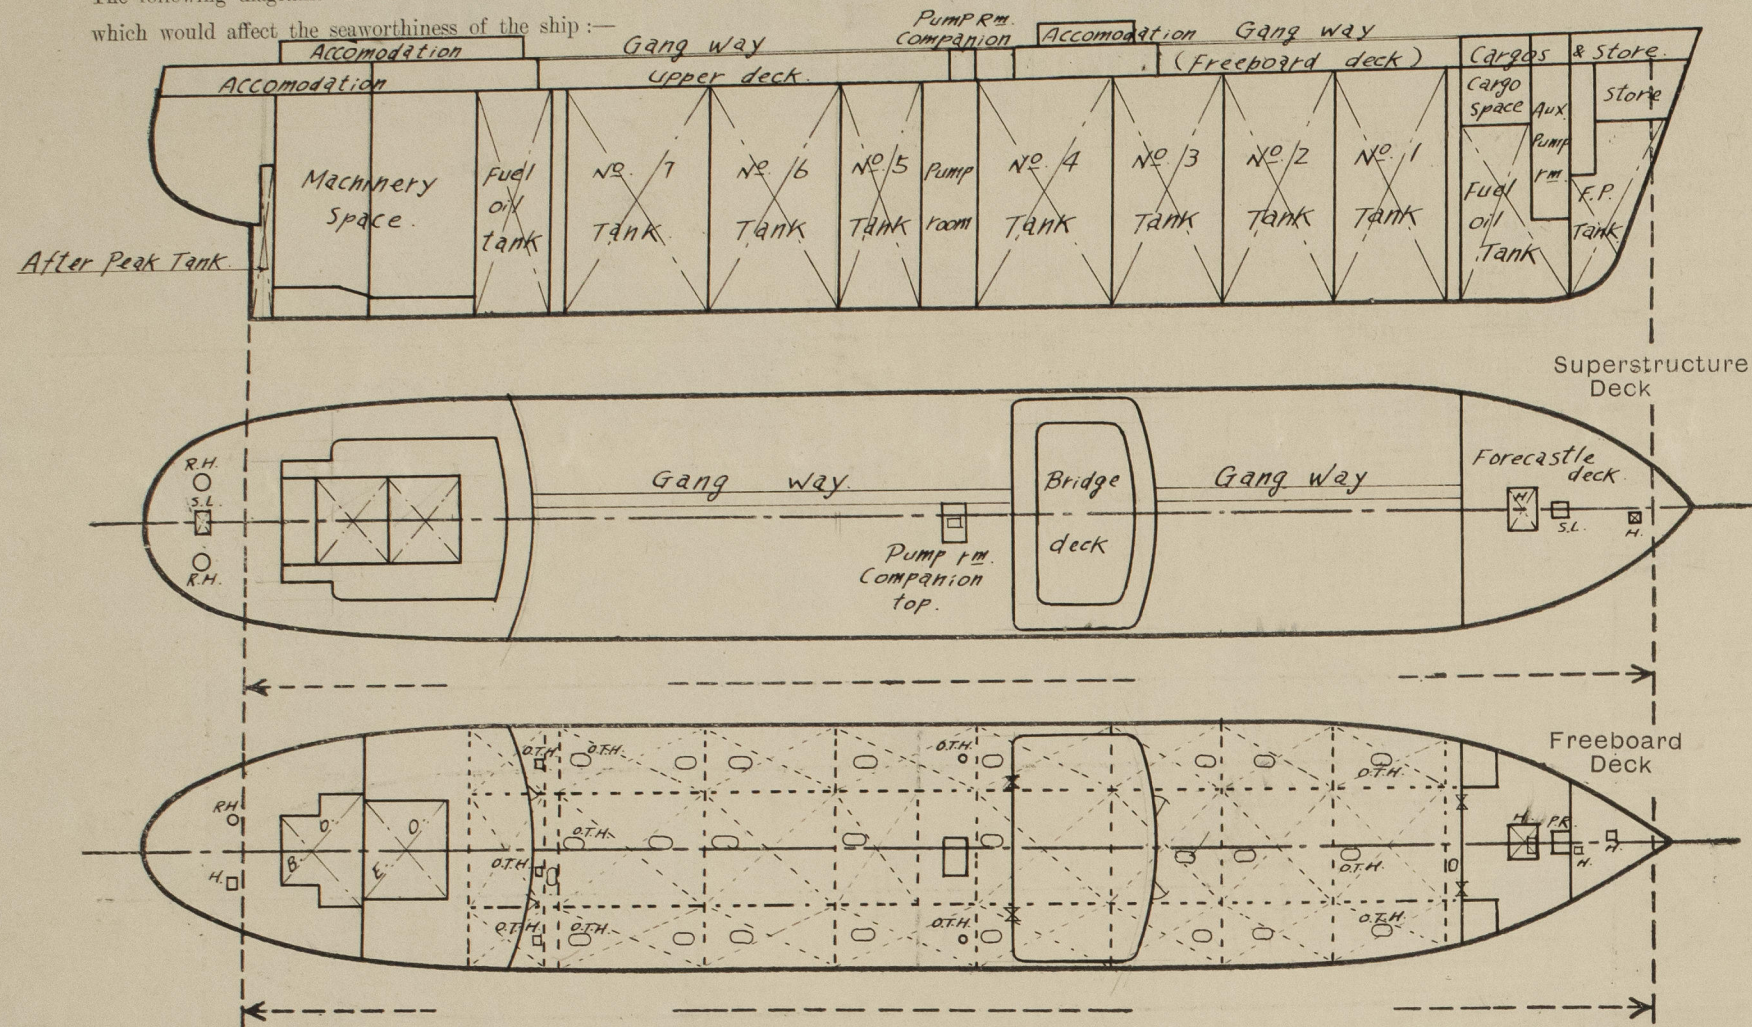 which would affect the seaworthiness of the ship :—
Accomodation
Gang way
Pump Rm.
Companion
Accomodation
Gang way
Accomodation
upper deck.
(Freeboard deck)
Cargos & Store.
Cargo
Space
Store
Aux.
Pump
rm.
Machinery
Space.
Fuel
oil
tank
No. 7
Tank
No. 6
Tank
No. 5
Tank
Pump
room
No. 4
Tank
No. 3
Tank
No. 2
Tank
No. 1
Tank
Fuel
oil
Tank
F.P.
Tank
After Peak Tank.
Superstructure
Deck
R.H.
S.L.
R.H.
Gang way.
Pump rm.
Companion
top.
Bridge
deck
Gang way
Forecastle
deck.
H
S.L.
H.
Freeboard
Deck
R.H
H.
B. O.
E. O.
O.T.H.
O.T.H.
O.T.H.
O.T.H.
O.T.H.
O.T.H.
O.T.H.
O.T.H.
O.T.H.
O.T.H.
O.T.H.
O
H.
P.R.
H.
H.